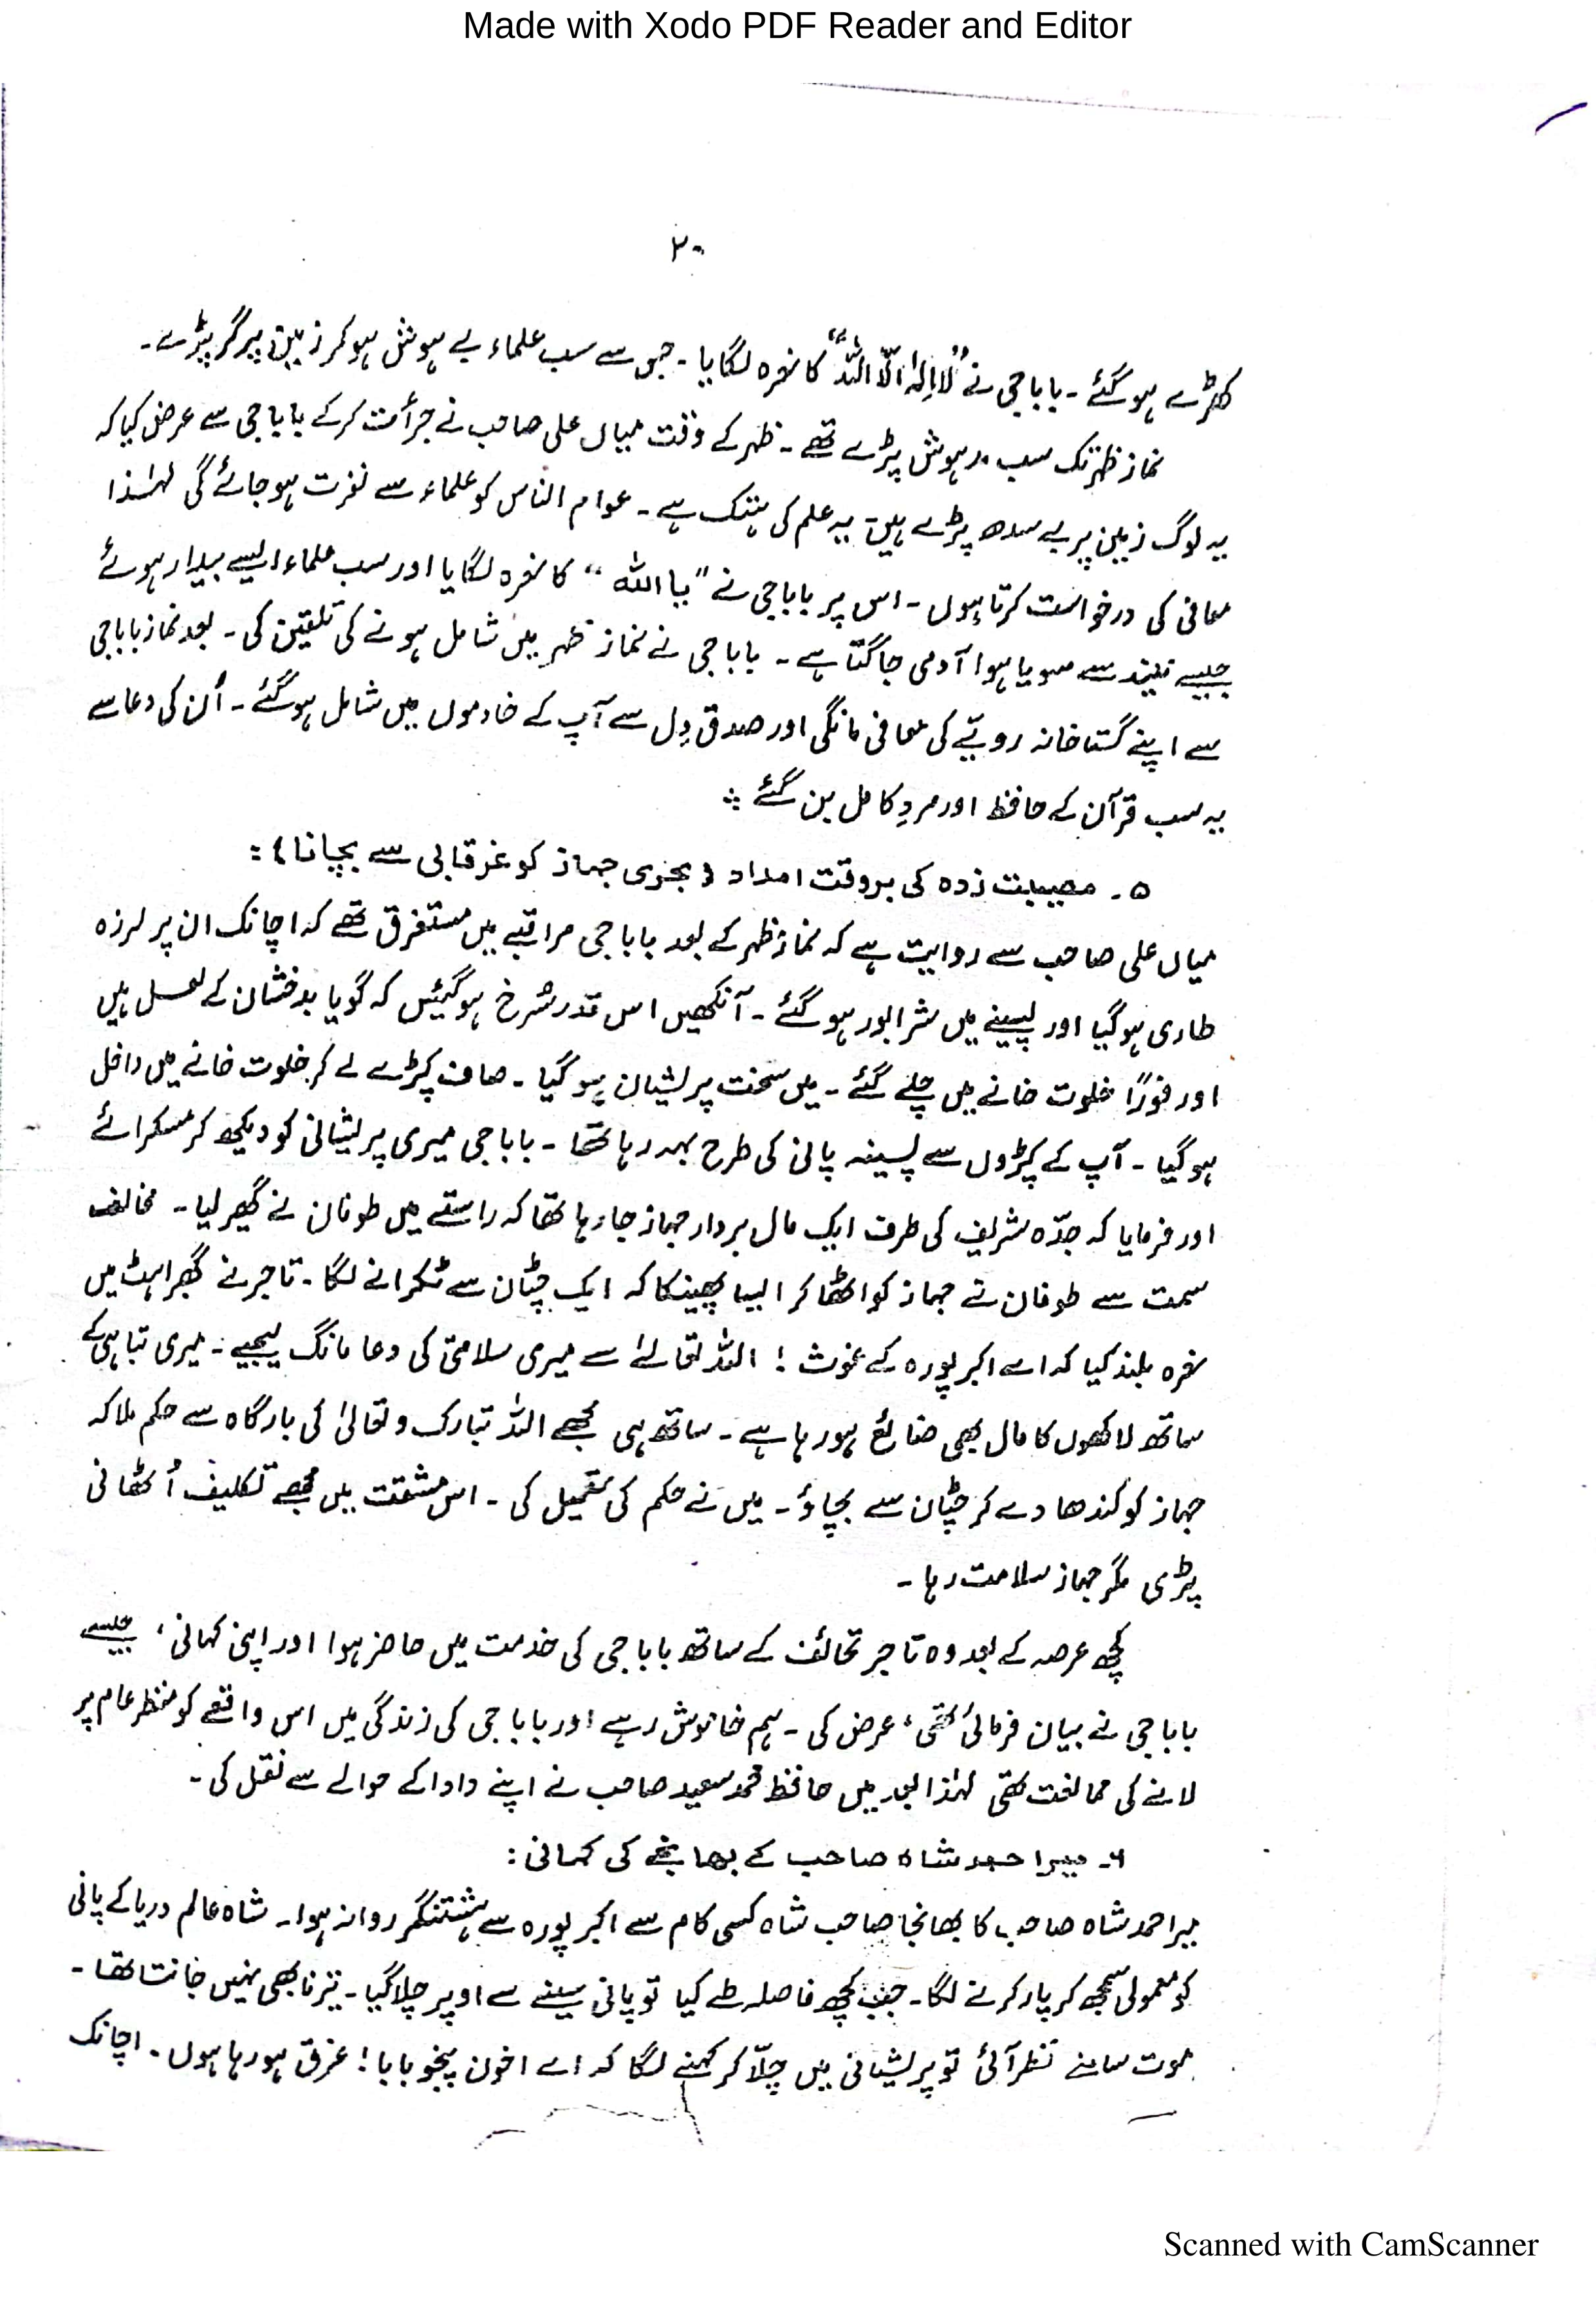 Made with Xodo PDF Reader and Editor
۲۰
کھڑے ہو گئے ۔ باباجی نے ”لا اِلہٰ الّا اللہ“ کا نعرہ لگایا ۔ جس سے سب علماء بے ہوش ہو کر زمین پر گر پڑے ۔
نماز ظہر تک سب مدہوش پڑے تھے ۔ ظہر کے وقت میاں علی صاحب نے جرأت کر کے بابا جی سے عرض کیا کہ
یہ لوگ زمین پر بے سدھ پڑے ہیں ۔ یہ علم کی ہتک ہے ۔ عوام الناس کو علماء سے نفرت ہو جائے گی لہٰذا
معافی کی درخواست کرتا ہوں ۔ اس پر باباجی نے ”یا اللہ“ کا نعرہ لگایا اور سب علماء ایسے بیدار ہوئے
جیسے نیند سے سویا ہوا آدمی جاگتا ہے ۔ بابا جی نے نماز ظہر میں شامل ہونے کی تلقین کی ۔ بعد نماز باباجی
سے اپنے گستاخانہ رویّے کی معافی مانگی اور صدق دِل سے آپ کے خادموں میں شامل ہو گئے ۔ اُن کی دعا سے
یہ سب قرآن کے حافظ اور مردِ کامل بن گئے ؞
۵ ۔ مصیبت زدہ کی بروقت امداد ( بحری جہاز کو غرقابی سے بچانا ) :
میاں علی صاحب سے روایت ہے کہ نماز ظہر کے بعد بابا جی مراقبے میں مستغرق تھے کہ اچانک ان پر لرزہ
طاری ہو گیا اور پسینے میں شرابور ہو گئے ۔ آنکھیں اس قدر سُرخ ہو گیئں کہ گویا بدخشان کے لعل ہیں
اور فورًا خلوت خانے میں چلے گئے ۔ میں سخت پریشان ہو گیا ۔ صاف کپڑے لے کر خلوت خانے میں داخل
ہو گیا ۔ آپ کے کپڑوں سے پسینہ پانی کی طرح بہہ رہا تھا ۔ بابا جی میری پریشانی کو دیکھ کر مسکرائے
اور فرمایا کہ جدّہ شریف کی طرف ایک مال بردار جہاز جا رہا تھا کہ راستے میں طوفان نے گھیر لیا ۔ مخالف
سمت سے طوفان نے جہاز کو اٹھا کر ایسا پھینکا کہ ایک چٹان سے ٹکرانے لگا ۔ تاجر نے گھبراہٹ میں
نعرہ بلند کیا کہ اے اکبر پورہ کے غوث ! اللہ تعالےٰ سے میری سلامتی کی دعا مانگ لیجیے ۔ میری تباہی کے
ساتھ لاکھوں کا مال بھی ضائع ہو رہا ہے ۔ ساتھ ہی مجھے اللہ تبارک و تعالیٰ کی بارگاہ سے حکم ملا کہ
جہاز کو کندھا دے کر چٹان سے بچاؤ ۔ میں نے حکم کی تعمیل کی ۔ اس مشقت میں مجھے تکلیف اُٹھانی
پڑی مگر جہاز سلامت رہا ۔
کچھ عرصہ کے بعد وہ تاجر تحائف کے ساتھ بابا جی کی خدمت میں حاضر ہوا اور اپنی کہانی ، جیسے
بابا جی نے بیان فرمائی تھی ، عرض کی ۔ ہم خاموش رہے اور بابا جی کی زندگی میں اس واقعے کو منظر عام پر
لانے کی ممانعت تھی لہٰذا بعد میں حافظ محمد سعید صاحب نے اپنے دادا کے حوالے سے نقل کی ۔
۶ ۔ میر احمد شاہ صاحب کے بھانجے کی کہانی :
میر احمد شاہ صاحب کا بھانجا صاحب شاہ کسی کام سے اکبر پورہ سے ہشتنگر روانہ ہوا ۔ شاہ عالم دریا کے پانی
کو معمولی سمجھ کر پار کرنے لگا ۔ جب کچھ فاصلہ طے کیا تو پانی سینے سے اوپر چلا گیا ۔ تیرنا بھی نہیں جانتا تھا ۔
موت سامنے نظر آئی تو پریشانی میں چلّا کر کہنے لگا کہ اے اخون پنجو بابا ! غرق ہو رہا ہوں ۔ اچانک
Scanned with CamScanner